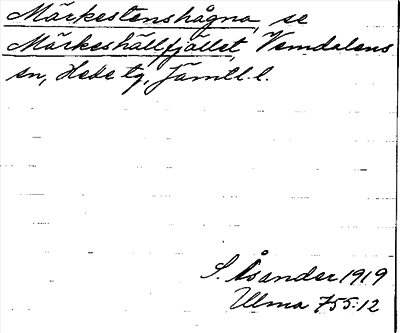 Märkestenshågna, se
Märkeshällfjället, Vemdalens
sn, Hede tg, Jämtl. l.
S. Åsander 1919
Ulma 755:12